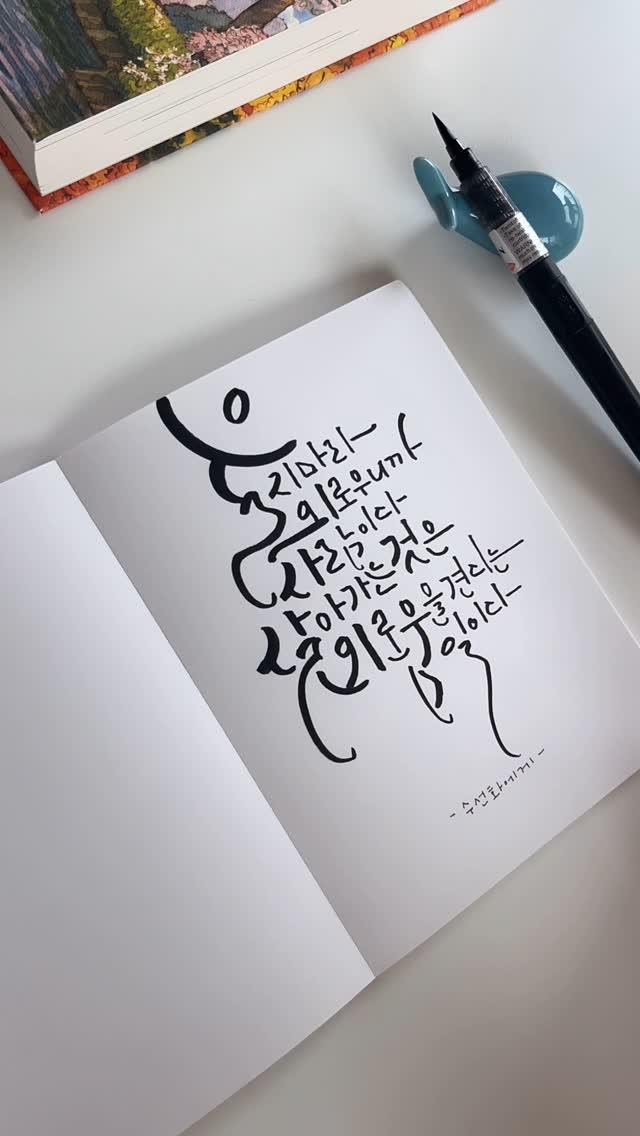 울지마라
외로우니까
사람이다
살아가는 것은
외로움을 견디는
일이다
- 수선화에게 -